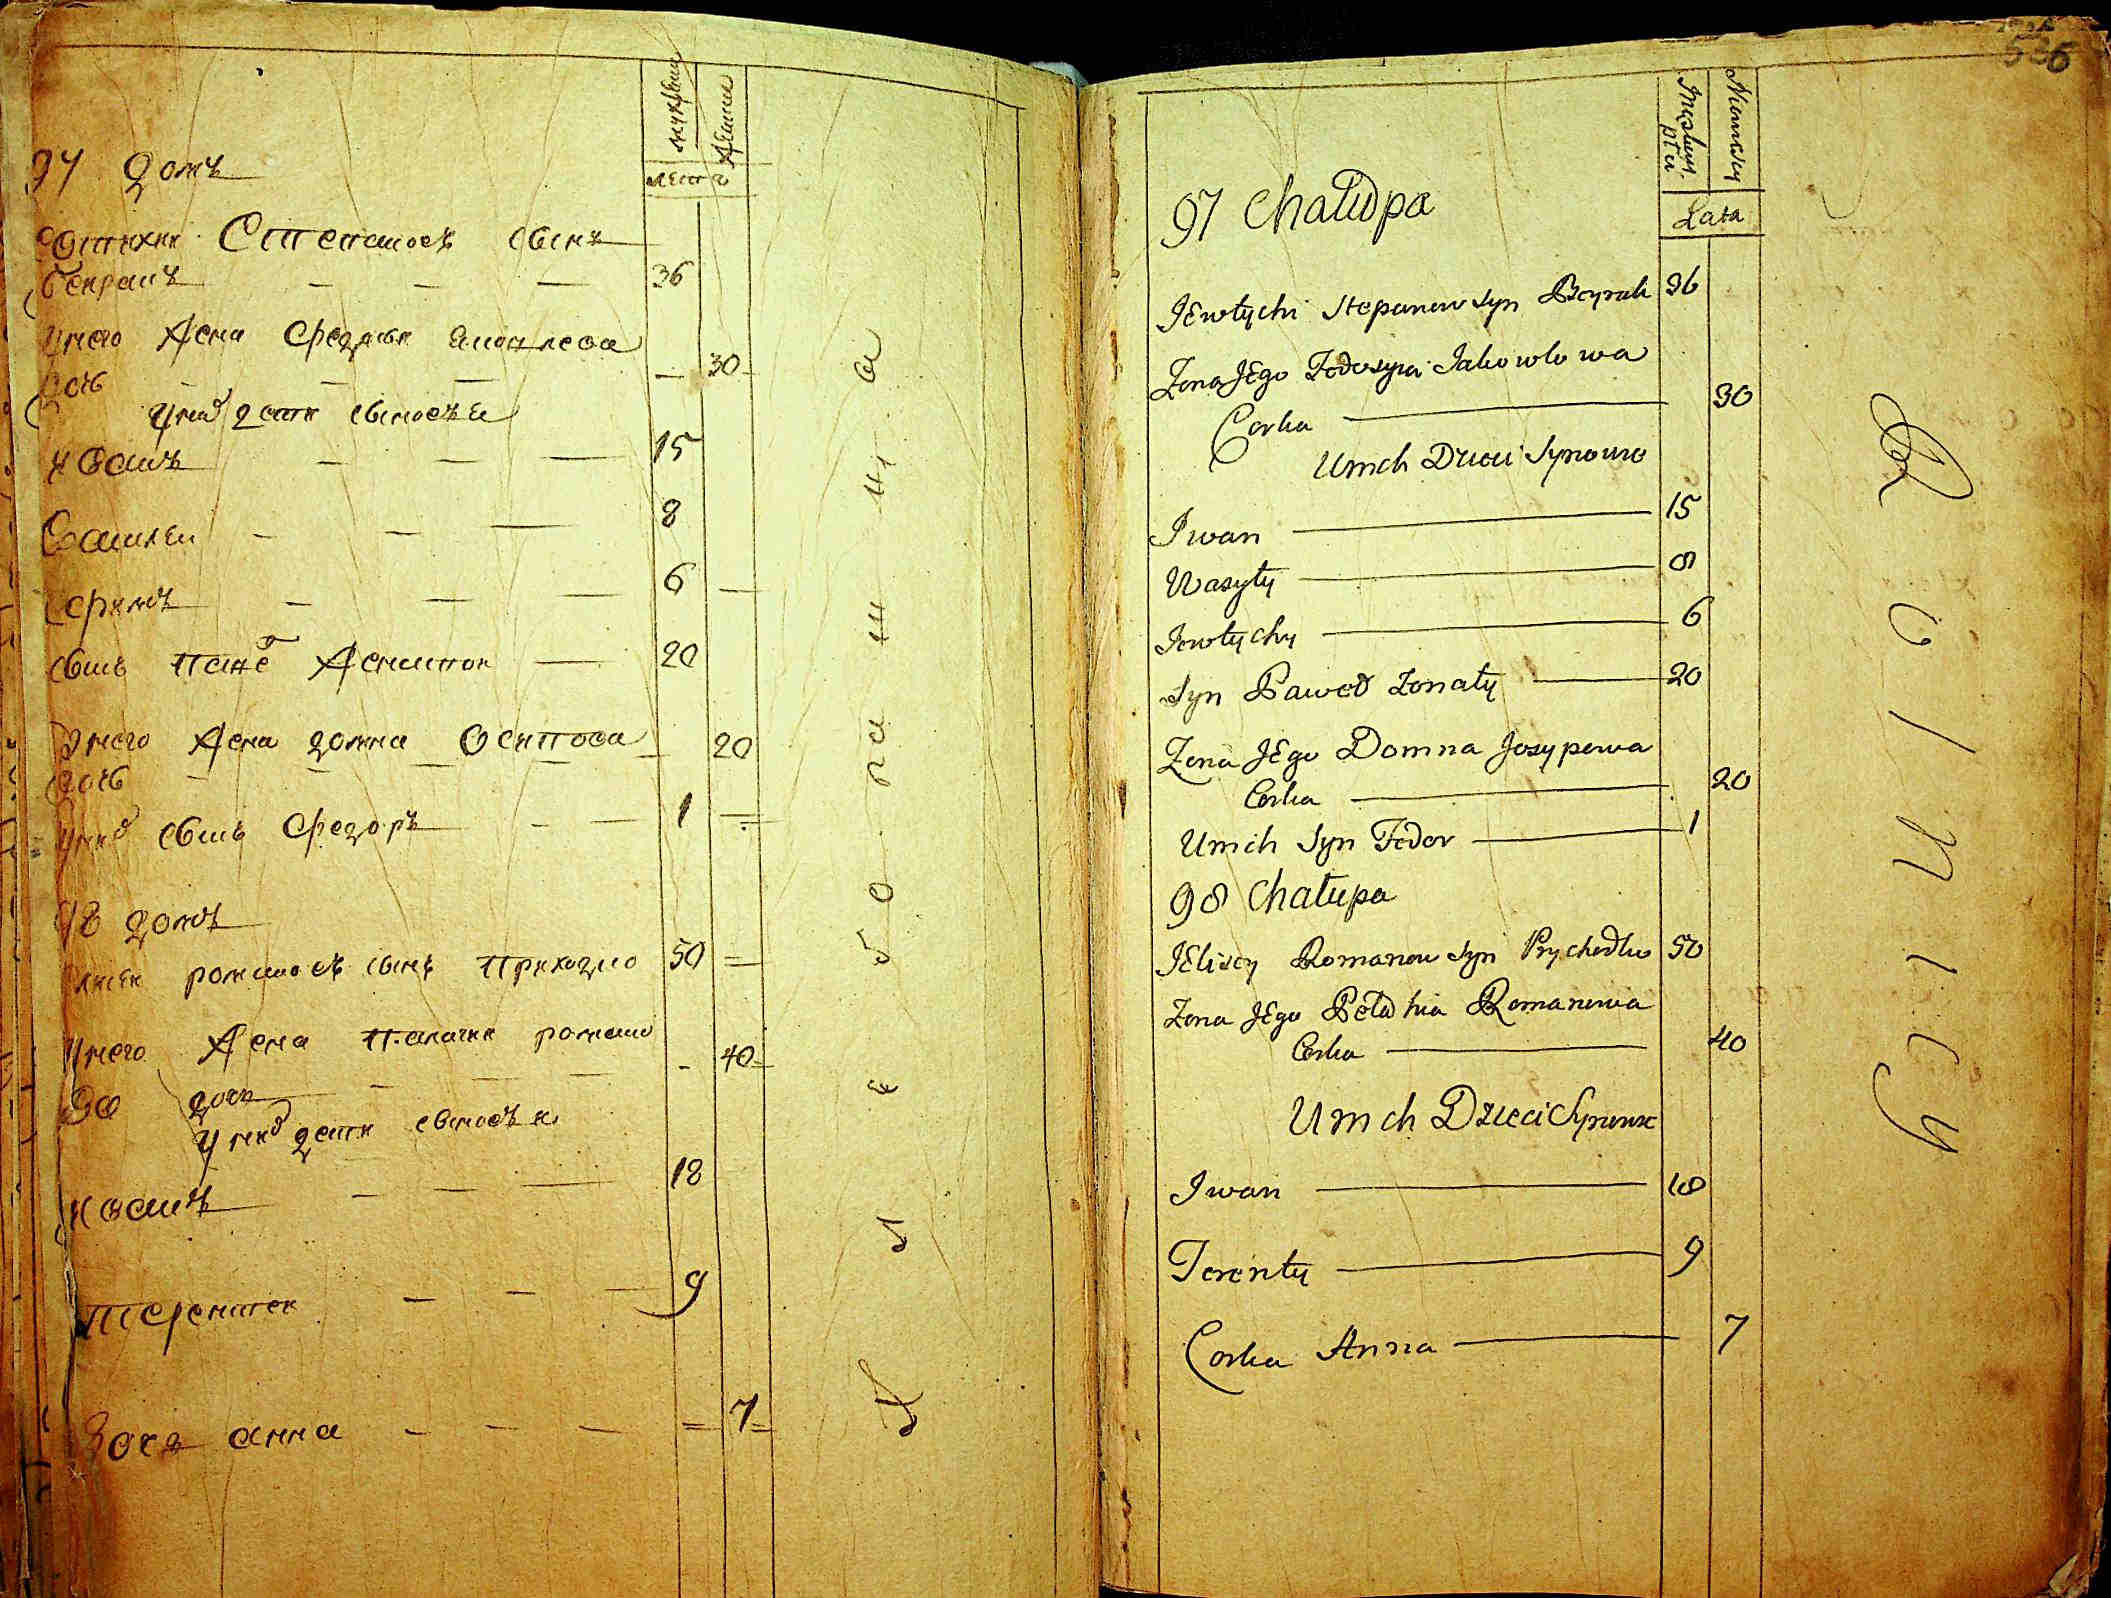 мужеска
женска
лета
97 домъ
Евтихии Степановъ сынъ
Бекракъ 36
у него жена Федосия Яковлева
дочь 30
у них дети сыновья
Иванъ 15
Василеи 8
6
сынъ Павел женатои 20
у него жена Домна Осипова
дочь 20
у них сынъ Федоръ 1
98 домъ
Елисеи Романовъ сынъ Приходко 50
у него жена Палагия Романо
ва дочь 40
у них дети сыновья
Иванъ 18
Терентеи 9
дочь Анна 7
536
Męskiey płci
Niewiescey
Lata
97 Chałupa
JEwtychi Stepanow Syn 36
Zona JEgo Fedosyia Jakowlowa
Corka 30
U nich Dzieci Synowie
Iwan 15
Wasyly 8
Jewtychy 6
Syn Paweł Zonaty 20
Zona JEgo Domna Josypowa
Corka 20
U nich Syn Fedor 1
98 Chałupa
JElisey Romanow Syn Prychodko 50
Zona JEgo Pelahia Romanowa
Corka 40
U nich Dzieci Synowie
Iwan 18
Terenty 9
Corka Anna 7